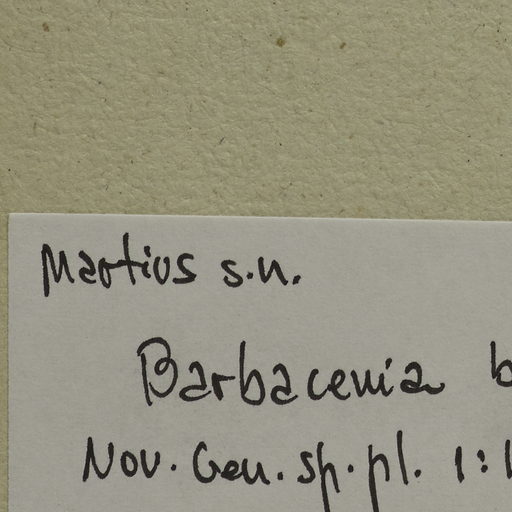 Martius s.n.
Barbacenia b
Nov. Gen. sp. pl. 1:1